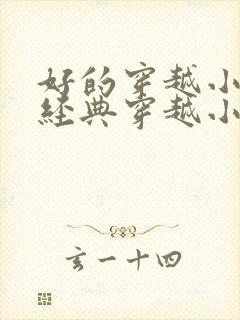 好的穿越小
經典穿越小
玄一十四